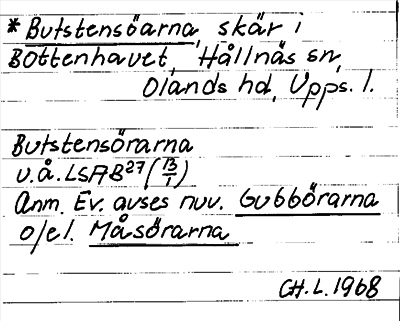 *Butstensöarna, skär i
Bottenhavet, Hållnäs sn,
Olands hd, Upps. l.
Butstensörarna
u.å. LSA B27 (B/1)
Anm. Ev. avses nuv. Gubbörarna
o/el. Måsörarna
CH.L. 1968